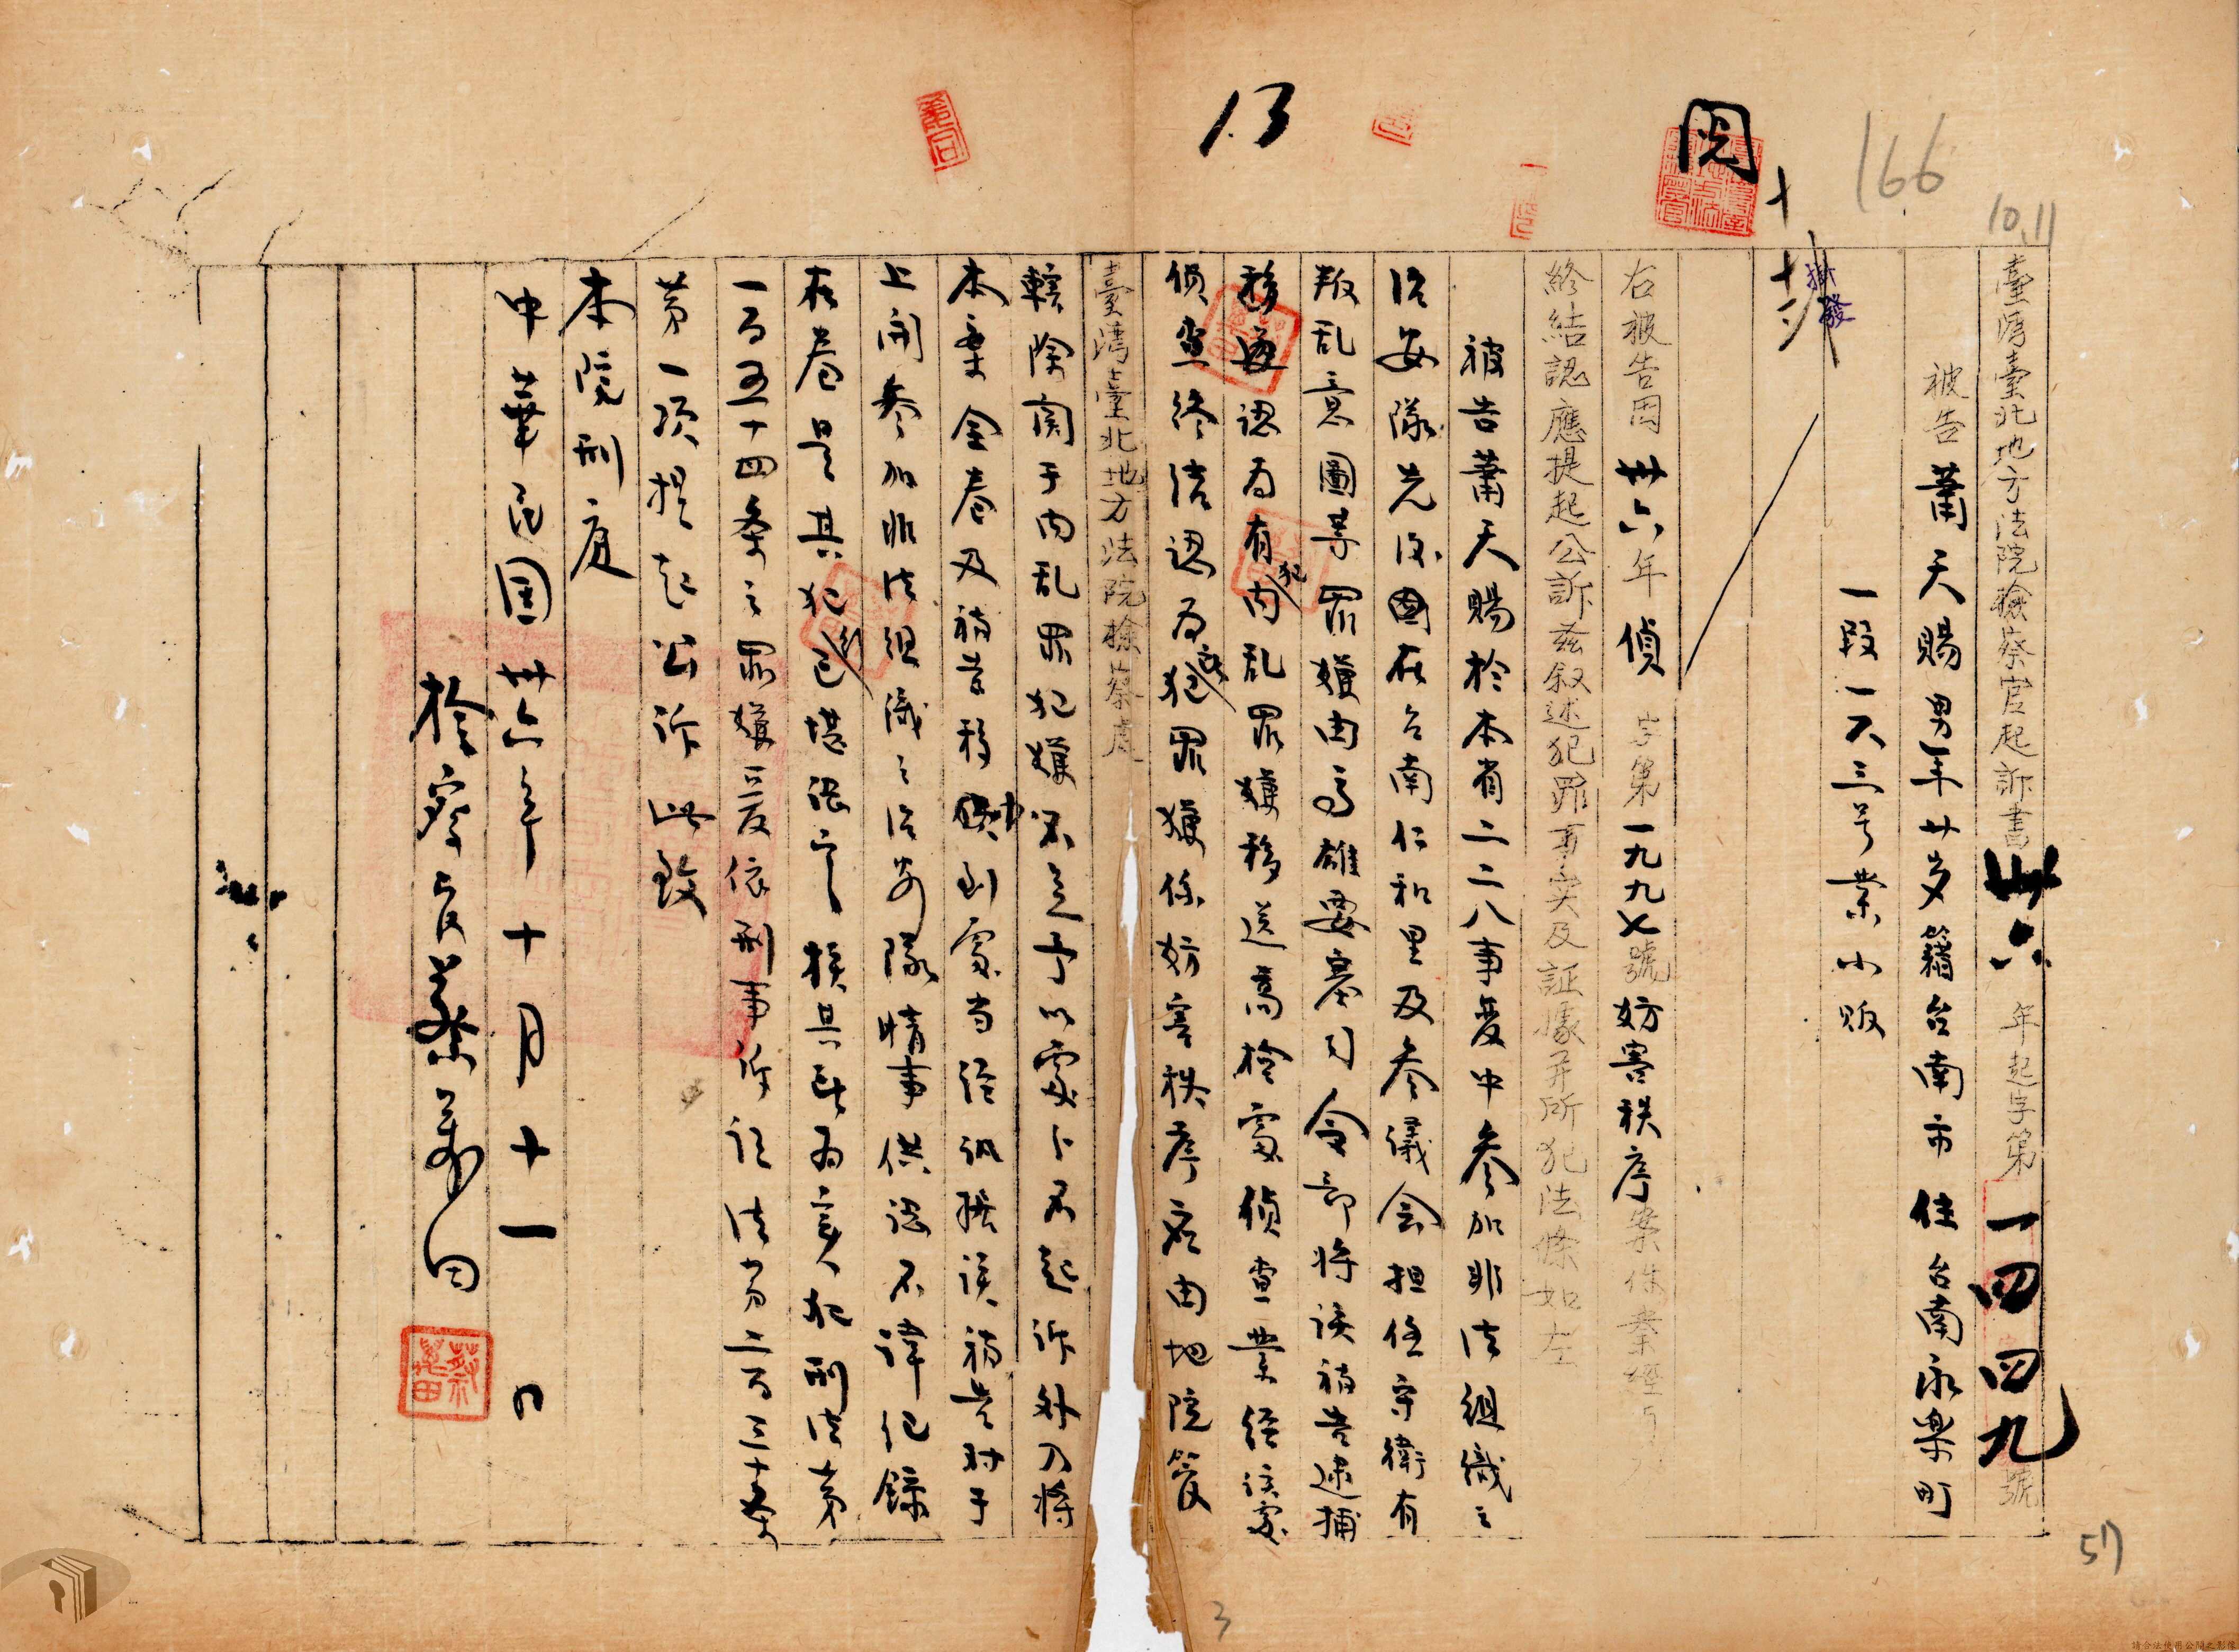 166
10,11
13
閱
臺灣臺北地方法院檢察官起訴書卅六年起字第一四四九號
被告蕭天賜男年廿岁籍台南市住台南永樂町
一段一六三号業小販
掛發
右被告因卅六年偵字第一九九七號妨害秩序案件業經
終結認應提起公訴茲叙述犯罪事实及証據并所犯法條如左
被告蕭天賜於本省二二八事变中参加非法組織之
治安隊先後在台南仁和里及参議会担任守衛有
叛乱意圖等罪嫌由高雄要塞司令部将該被告逮捕
移送認为有犯内乱罪嫌移送高檢處偵查業經該處
偵查終結認为犯罪嫌係妨害秩序应由地院管
臺灣臺北地方法院檢察處
轄除関于内乱罪犯嫌不足予以處分不起訴外乃将
本案全卷及被告移送到處当經訊據該被告对于
上開参加非法組織之治安隊情事供認不諱记錄
在卷是其犯已堪認定核其所为实犯刑法第
一百五十四条之罪嫌爰依刑事訴訟法第二百三十条
第一項提起公訴此致
本院刑庭
中華民国卅六年十月十一日
檢察官蔡萬田
蔡萬田
57
3
請合法使用公開之影像